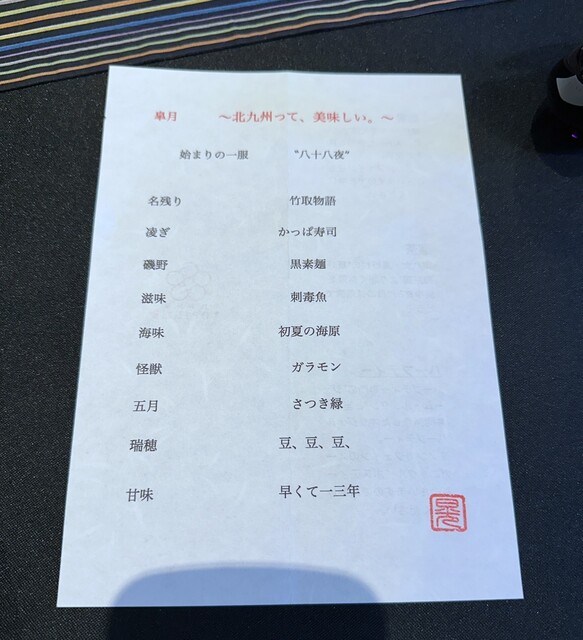 皐月 ～北九州って、美味しい。～
始まりの一服 “八十八夜“
名残り 竹取物語
凌ぎ かっぱ寿司
磯野 黒素麺
滋味 刺毒魚
海味 初夏の海原
怪獣 ガラモン
五月 さつき緑
瑞穂 豆、豆、豆、
甘味 早くて一三年